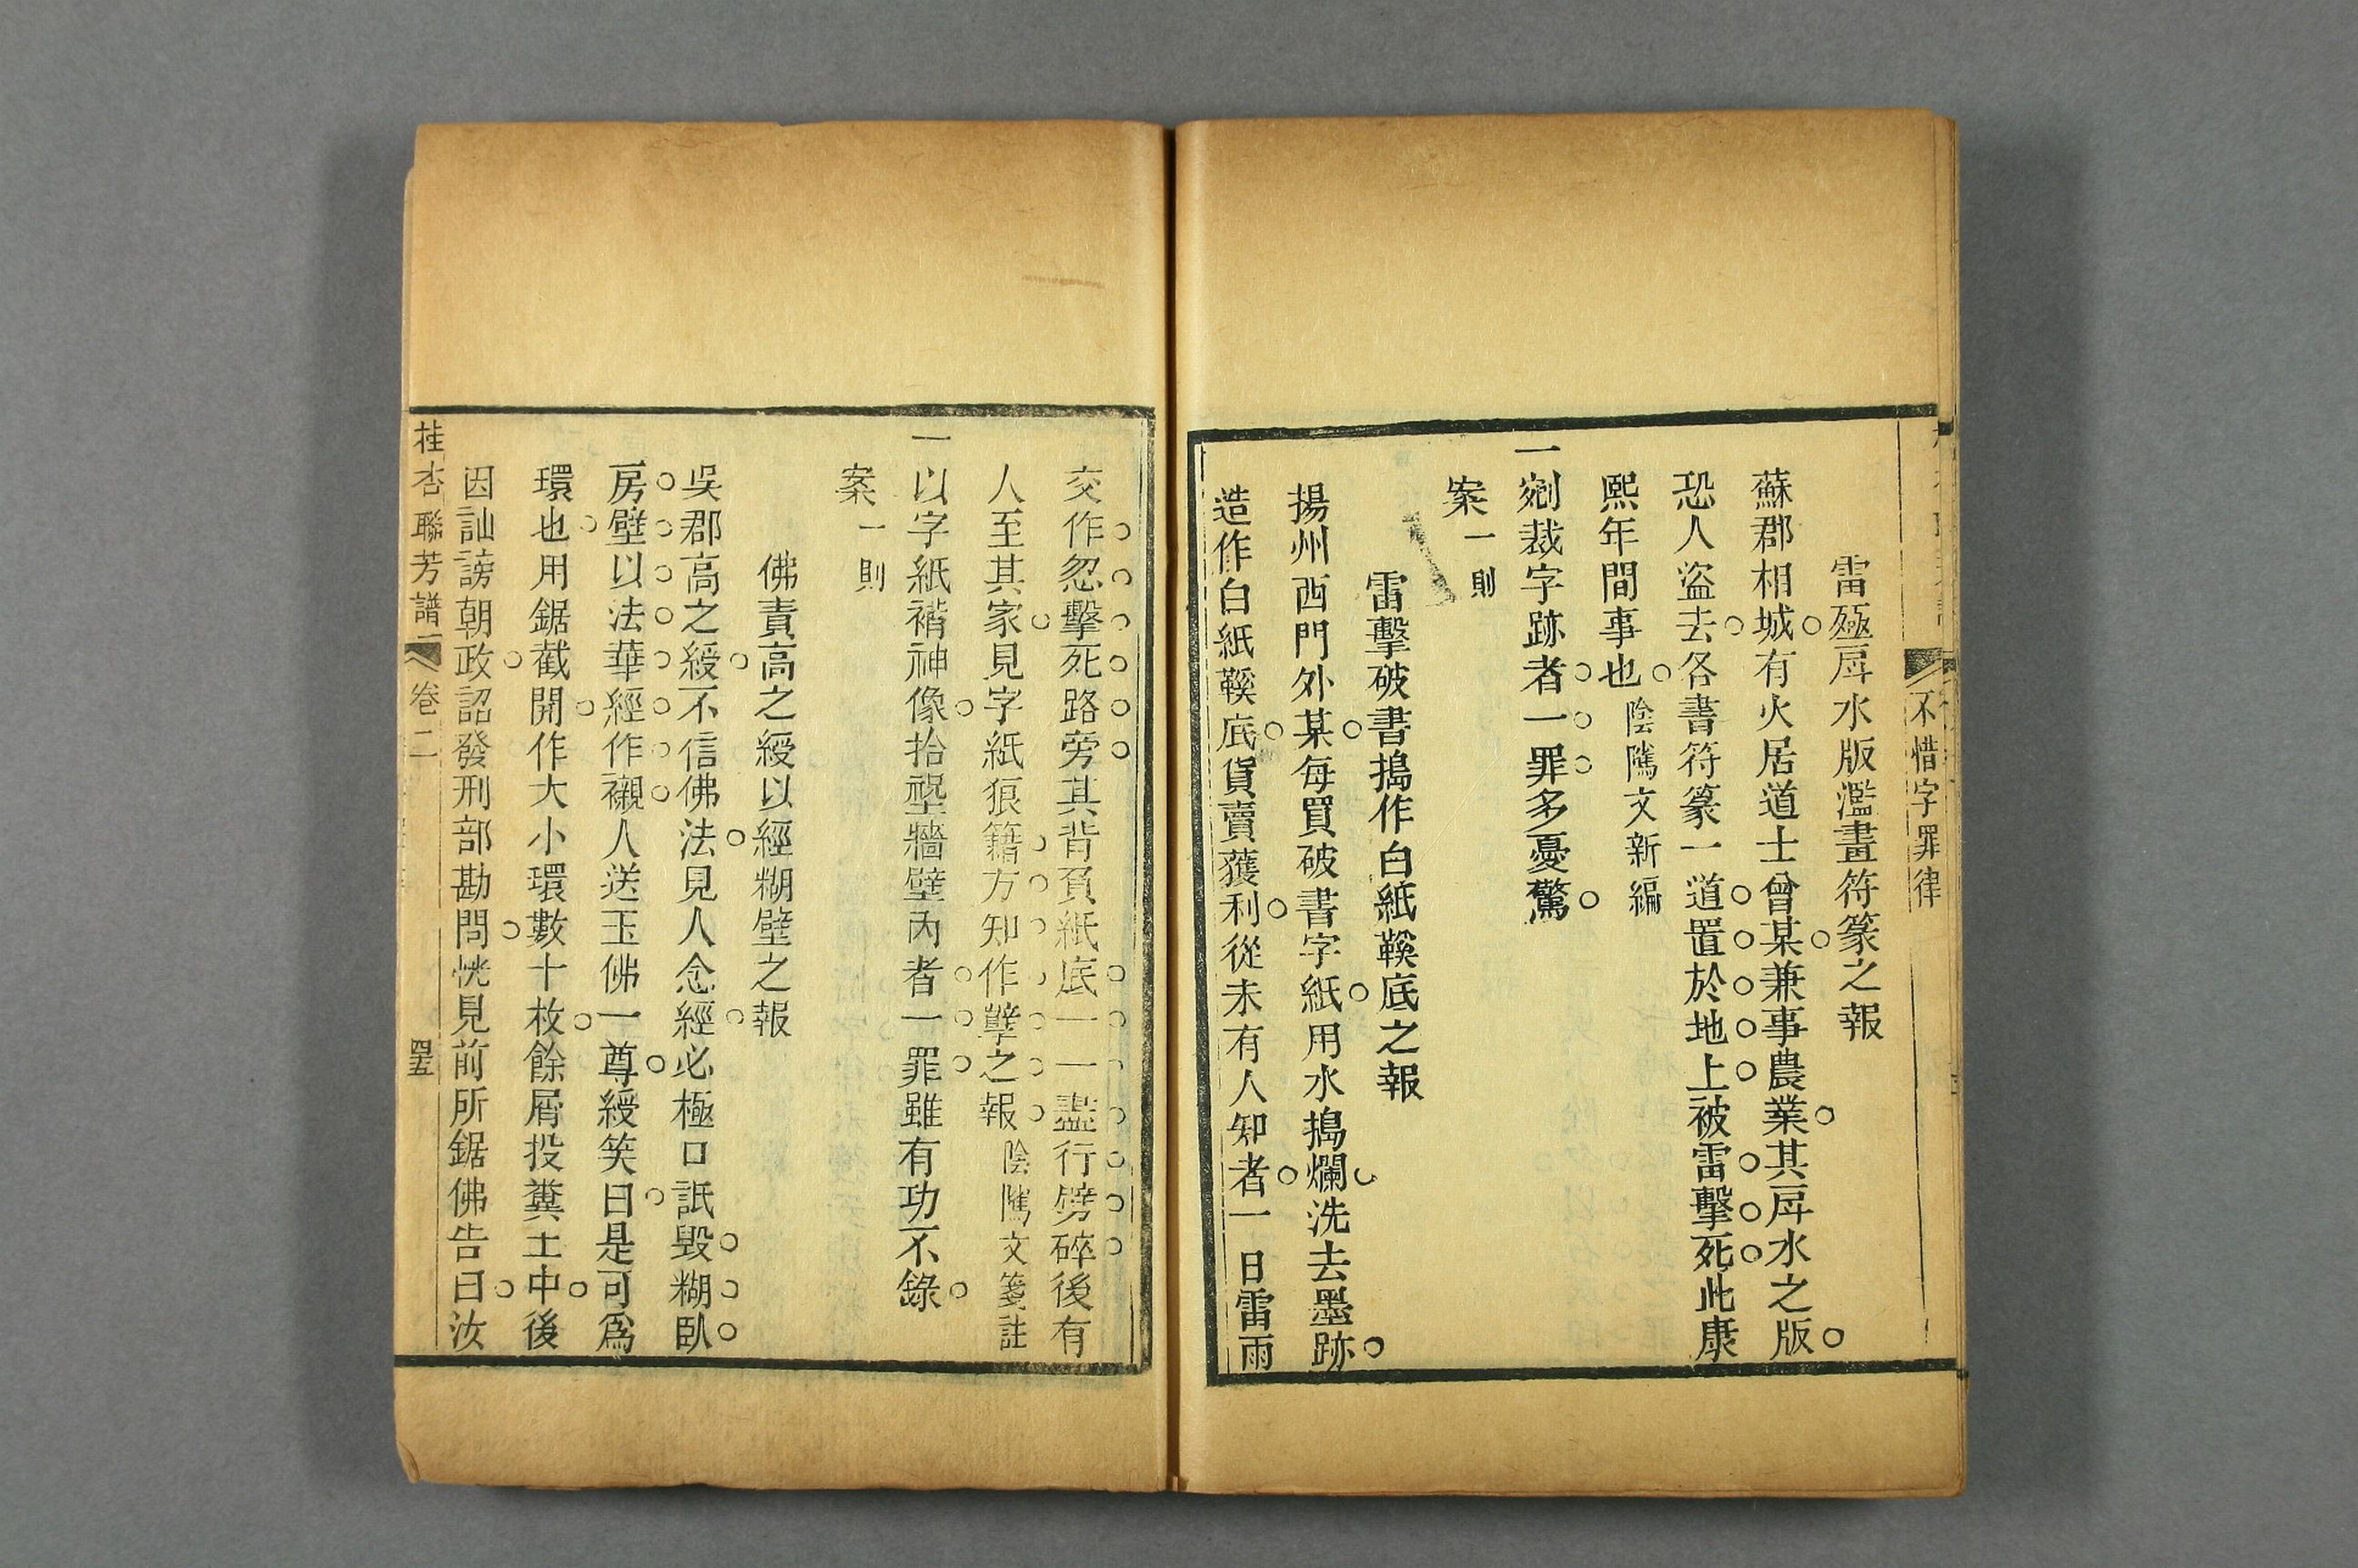 不惜字罪律
雷殛戽水版濫畫符篆之報
蘇郡相城有火居道士曾某兼事農業其戽水之版
恐人盜去各書符篆一道置於地上被雷擊死此康
熙年間事也陰騭文新編
一剜裁字跡者一罪多憂驚
案一則
雷擊破書搗作白紙鞵底之報
揚州西門外某每買破書字紙用水搗爛洗去墨跡
造作白紙鞵底貨賣獲利從未有人知者一日雷雨
交作忽擊死路旁其背負紙底一一盡行劈碎後有
人至其家見字紙狼籍方知作孽之報陰騭文箋註
一以字紙褙神像拾壂牆壁內者一罪雖有功不錄
案一則
佛責高之綬以經糊壁之報
吳郡高之綬不信佛法見人念經必極口詆毀糊臥
房壁以法華經作襯人送玉佛一尊綬笑曰是可爲
環也用鋸截開作大小環數十枚餘屑投糞土中後
因訕謗朝政詔發刑部勘問恍見前所鋸佛告曰汝
桂杏聯芳譜 卷二 四五